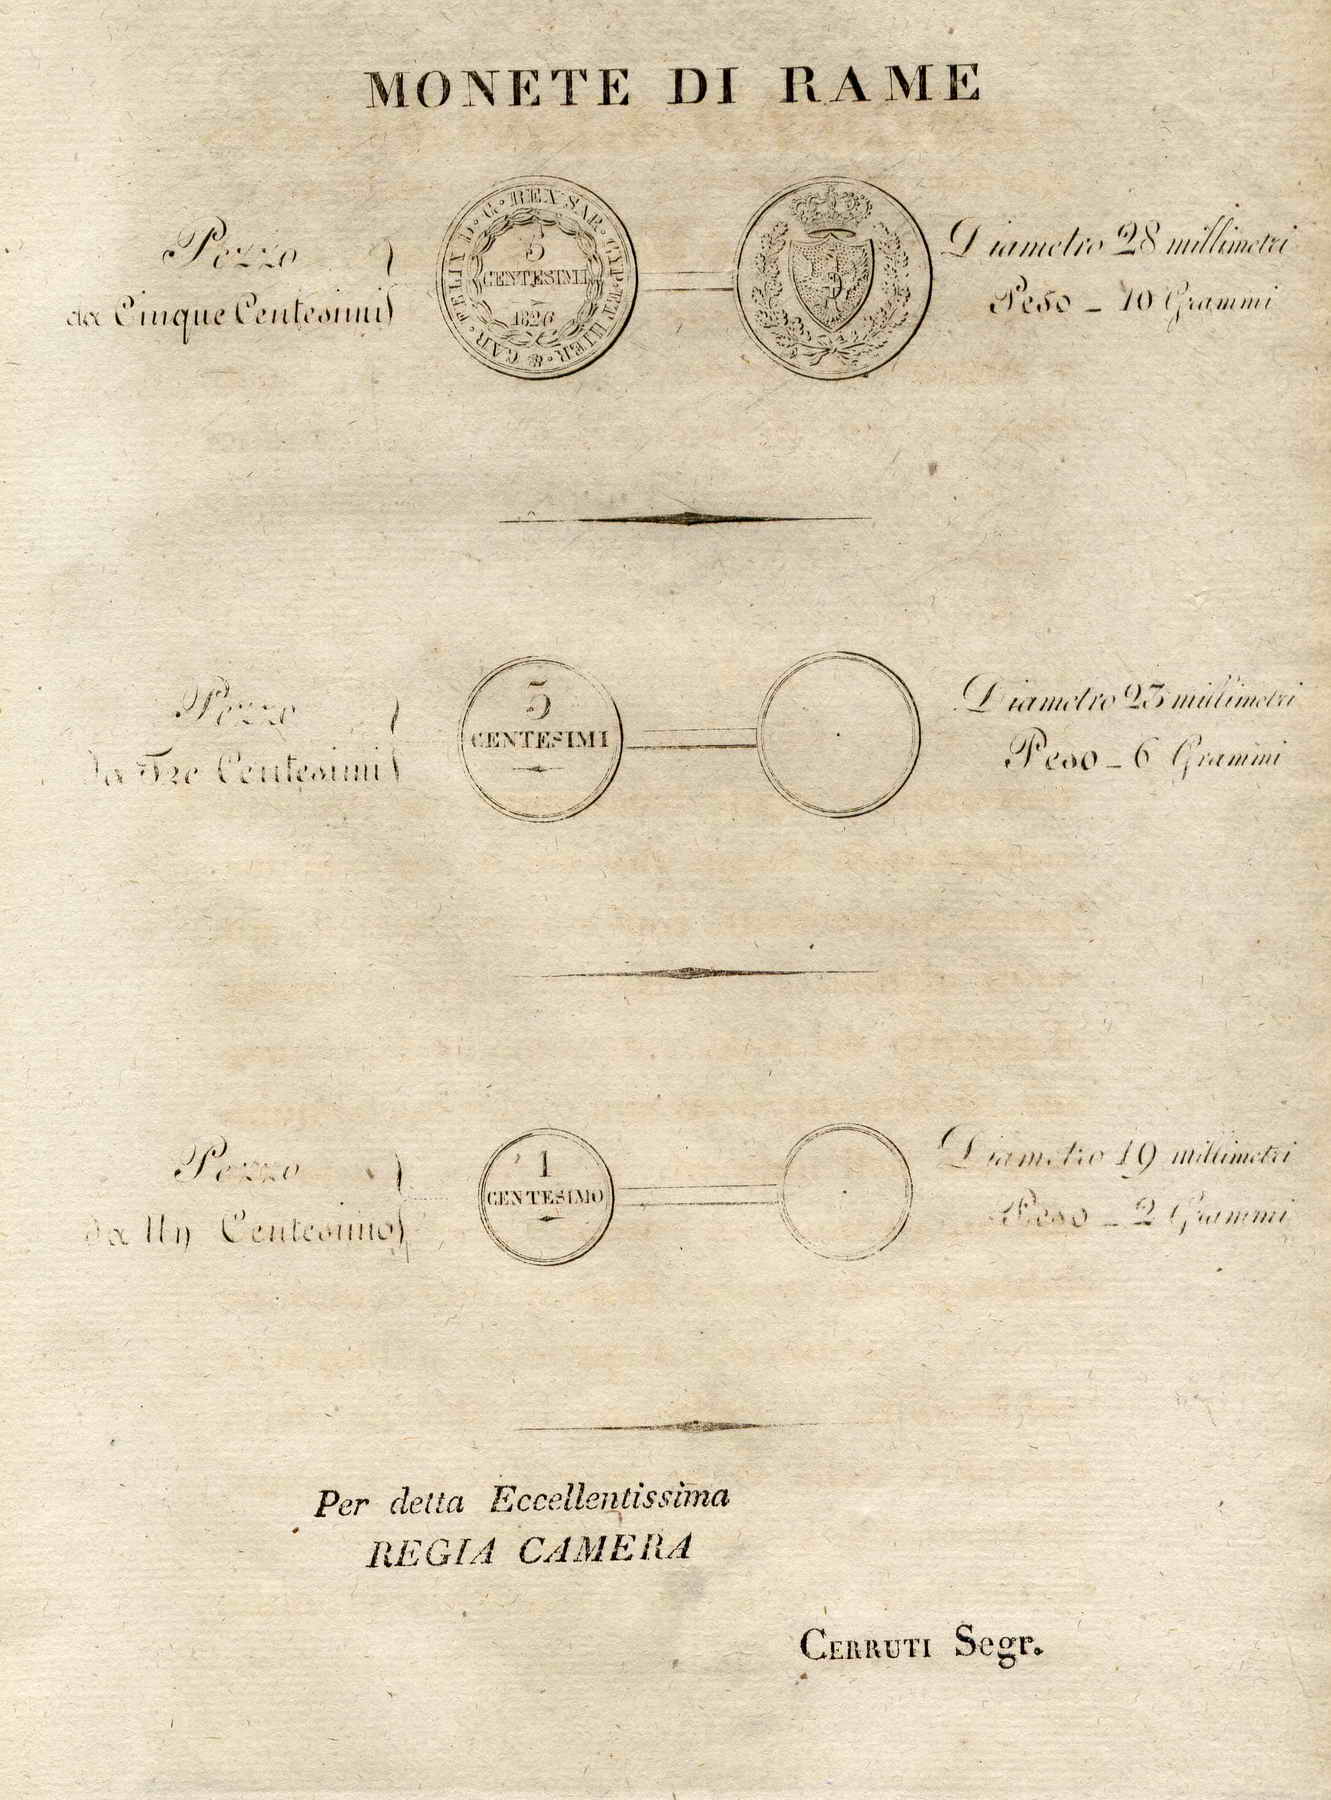 MONETE DI RAME
Pezzo
da Cinque Centesimi
CAR · FELIX D · G · REX SAR · CYP · ET HIER ·
5
CENTESIMI
1826
Diametro 28 millimetri
Peso – 10 Grammi
Pezzo
da Tre Centesimi
3
CENTESIMI
Diametro 23 millimetri
Peso – 6 Grammi
Pezzo
da Un Centesimo
1
CENTESIMO
Diametro 19 millimetri
Peso – 2 Grammi
Per detta Eccellentissima
REGIA CAMERA
CERRUTI Segr.